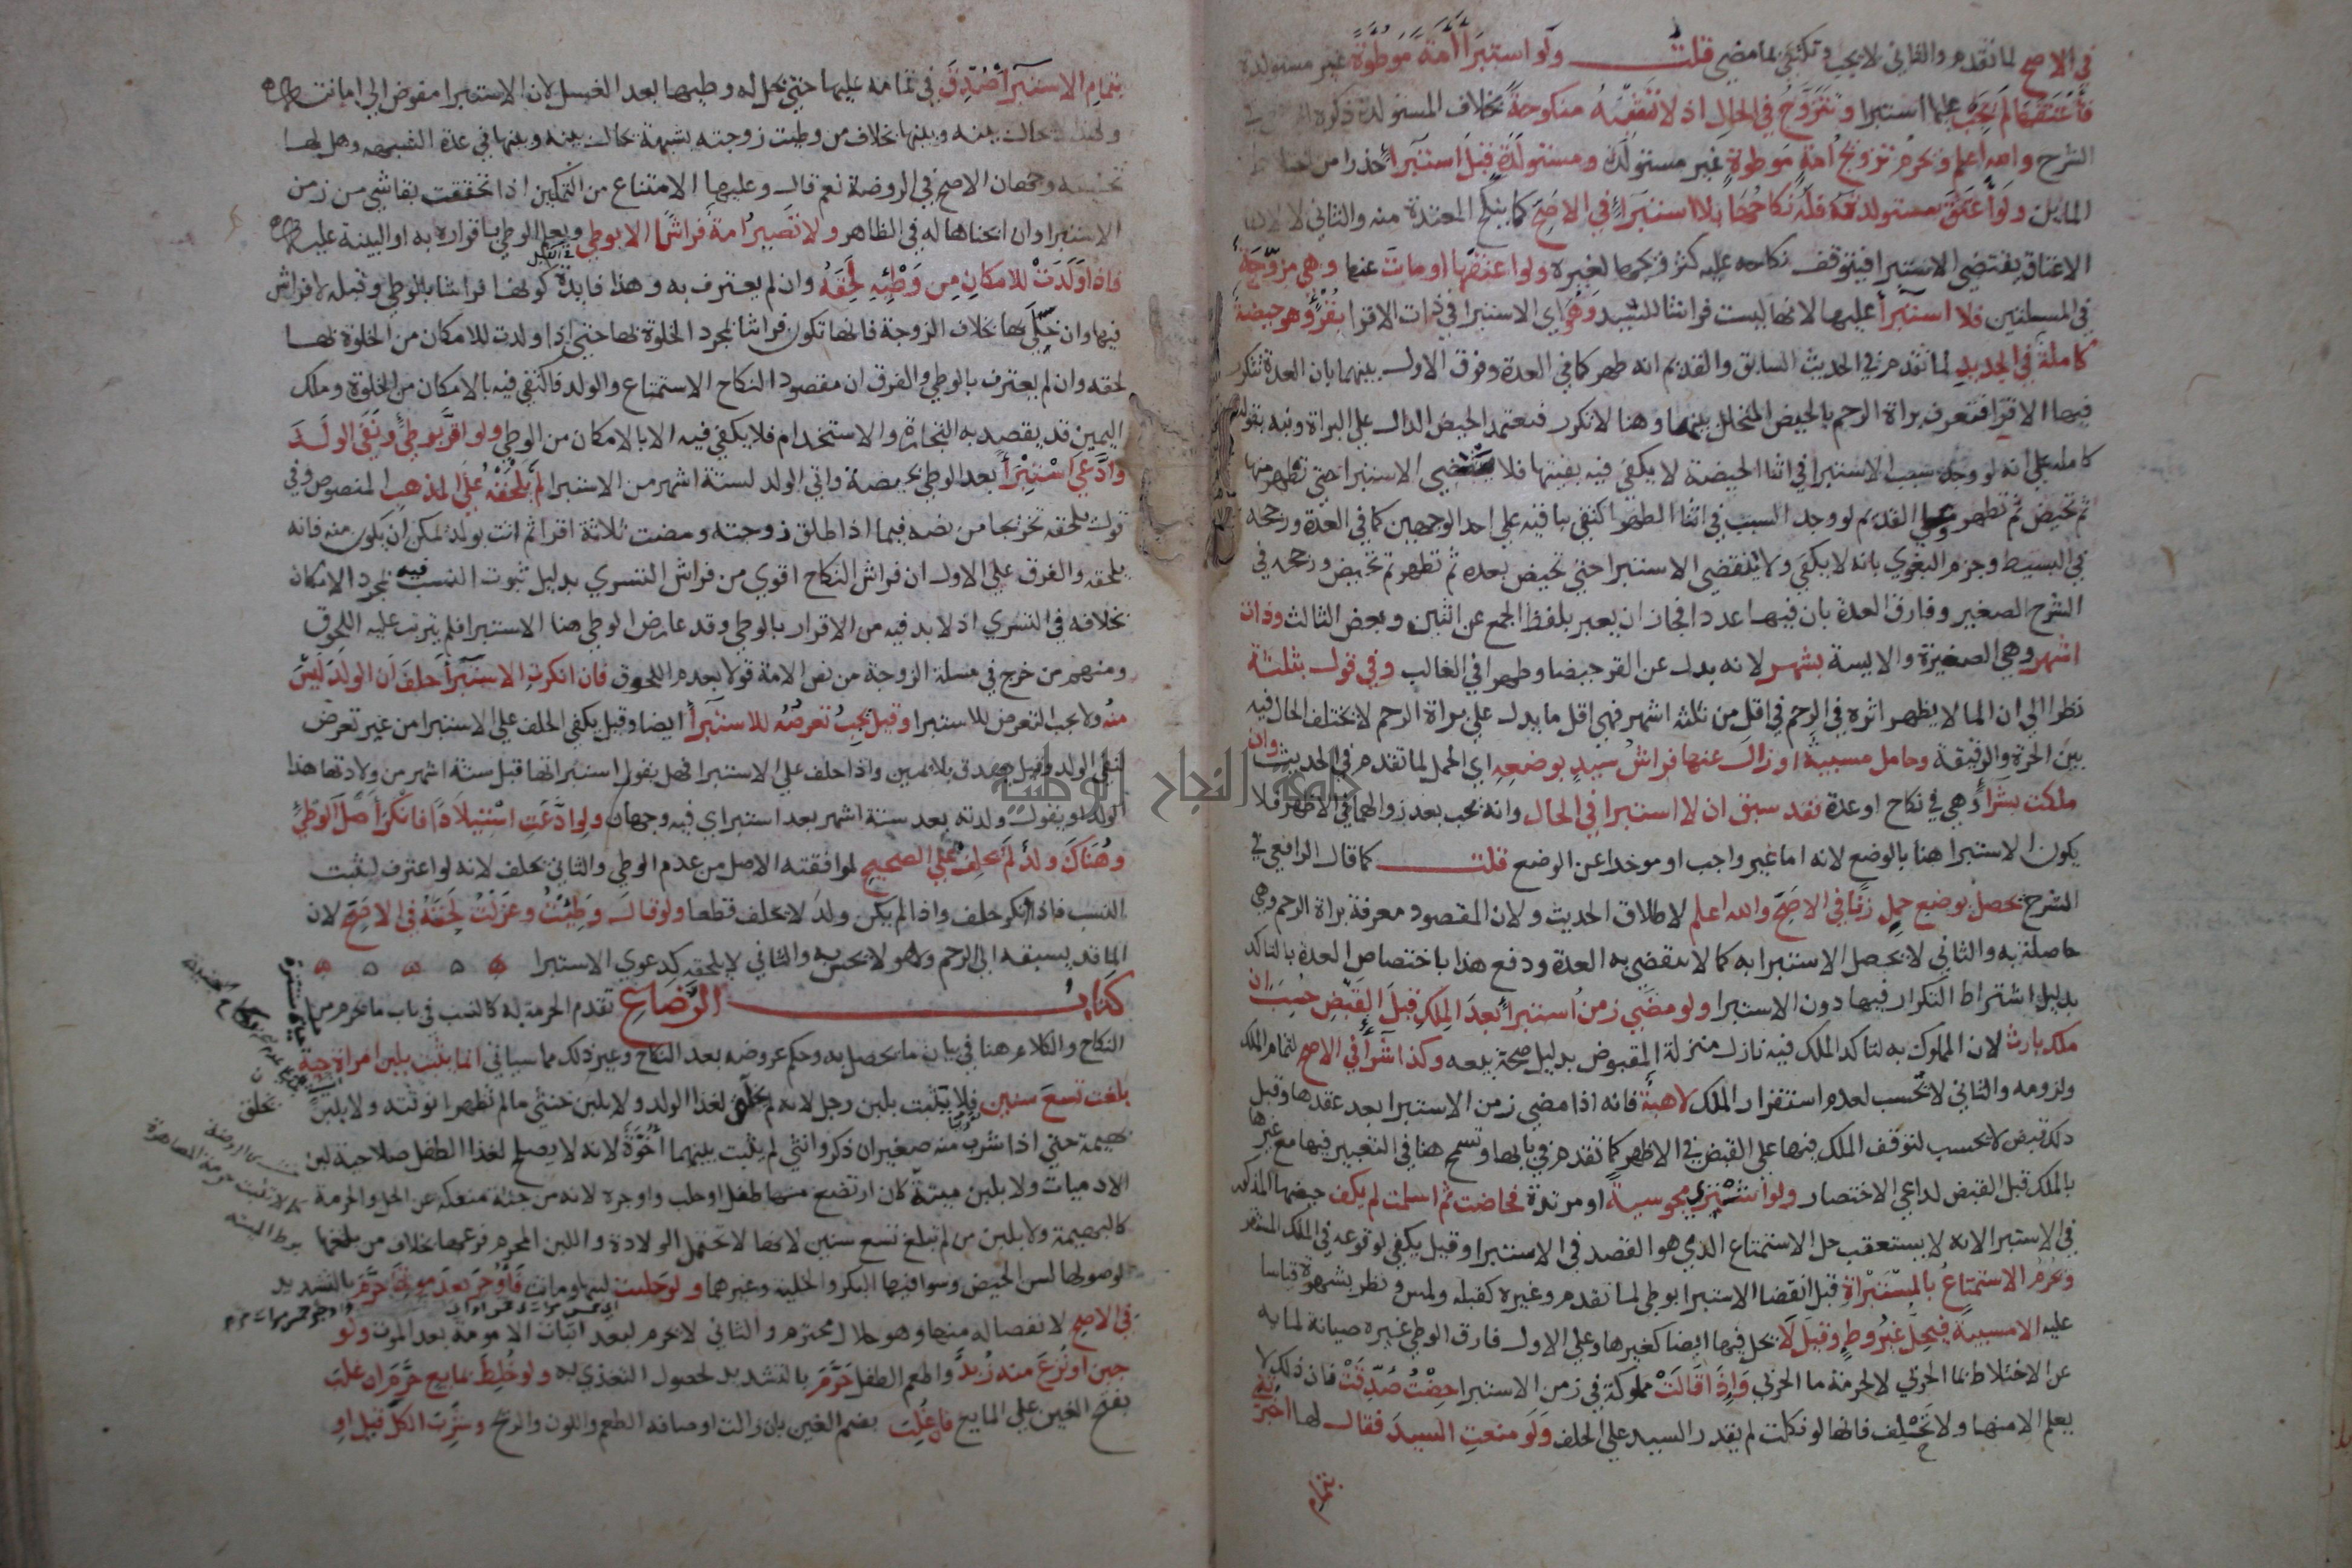 في الاصح لما تقدم والثاني لا يجب وتكتفي بما مضى قلت ولو استبرأ امة موطوة غير مستولدة
فأعتقها لم يجب عليها استبرا وتتزوج في الحال اذ لا تشبه منكوحة بخلاف المستولدة ذكره
الشرح والله اعلم ويحرم تزويج امة موطوة غير مستولدة ومستولدة قبل استبراء حذرا من اختلاط
المائين ولو اعتق مستولدته فله نكاحها بلا استبراء في الاصح كما ينكح المعتدة منه والثاني لا لان
الاعتاق يقتضي الاستبرا فيتوقف نكاحه عليه كتزويجها لغيره ولو اعتقها او مات عنها وهي مزوجة
في المسلتين فلا استبرأ عليها لانها ليست فراشا للسيد وهو اي الاستبرا في ذات الاقرا بقرء وهو حيضة
كاملة في الجديد لما تقدم في الحديث السابق والقديم انه طهر كما في العدة وفرق الاول بينهما بان العدة تتكرر
فيها الاقرا فتعرف براة الرحم بالحيض المتخلل بينهما وهنا لا تكرر فيعتمد الحيض الدال على البراة ونبه بقوله
كاملة على انه لو وجد سبب الاستبرا في اثنا الحيضة لا يكفي فيه بقيتها فلا ينقضي الاستبرا حتى تطهر منها
ثم تحيض ثم تطهر وعلى القديم لو وجد السبب في اثنا الطهر اكتفي بباقيه على احد الوجهين كما في العدة ورجحه
في البسيط وجزم البغوي بانه لا يكفي ولا ينقضي الاستبرا حتى تحيض بعده ثم تطهر ثم تحيض ورجحه في
الشرح الصغير وفارق العدة بان فيها عددا فجاز ان يعبر بلفظ الجمع عن اثنين وبعض الثالث وذات
اشهر وهي الصغيرة والايسة بشهر لانه بدل عن القرء حيضا وطهرا في الغالب وفي قول بثلثة
نظرا الى ان الما لا يظهر اثره في الرحم في اقل من ثلثه اشهر فهي اقل ما يدل على براة الرحم لا يختلف الحال فيه
بين الحرة والرقيقة وحامل مسبية او زال عنها فراش سيد بوضعه اي الحمل لما تقدم في الحديث وان
ملكت بشراء وهي في نكاح او عدة فقد سبق ان لا استبرا في الحال وانه يجب بعد زوالهما في الاظهر فلا
يكون الاستبرا هنا بالوضع لانه اما غير واجب او موخر عن الوضع قلت كما قال الرافعي في
الشرح يحصل بوضع حمل زنا في الاصح والله اعلم لاطلاق الحديث ولان المقصود معرفة براة الرحم وهي
حاصلة به والثاني لا يحصل الاستبرا به كما لا تنقضي به العدة ودفع هذا باختصاص العدة بالتاكد
بدليل اشتراط التكرار فيها دون الاستبرا ولو مضى زمن استبراء بعد الملك قبل القبض حسب ان
ملك بارث لان المملوك به لتاكد الملك فيه نازل منزلة المقبوض بدليل صحة بيعه وكذا شرأ في الاصح لتمام الملك
ولزومه والثاني لا يحسب لعدم استقرار الملك لا هبة فانه اذا مضى زمن الاستبرا بعد عقدها وقبل
ذلك قبض لا يحسب لتوقف الملك فيها على القبض في الاظهر كما تقدم في بابها وتسمح هنا في التعبير فيها مع غيرها
بالملك قبل القبض لداعي الاختصار ولو اشترى مجوسية او مرتدة فحاضت ثم اسلمت لم يكف حيضها المذكور
في الاستبرا لانه لا يستعقب حل الاستمتاع الذي هو القصد في الاستبرا وقيل يكفي لوقوعه في الملك المستقر
ويحرم الاستمتاع بالمستبرأة قبل انقضا الاستبرا بوطي لما تقدم وغيره كقبله ولمس ونظر بشهوة قياسا
عليه الا مسبية فيحل غير وطء وقيل لا يحل فيها ايضا كغيرها وعلى الاول فارق الوطي غيره صيانة لمايه
عن الاختلاط بما الحربي لا لحرمة ما الحربي وإذا قالت مملوكة في زمن الاستبرا حضت صدقت فان ذلك لا
يعلم الا منها ولا تحلف فانها لو نكلت لم يقدر السيد على الحلف ولو منعت السيد فقال لها اخبرتني
بتمام
بتمام الاستبراء صدق في تمامه عليها حتى يحل له وطيها بعد الغسل لان الاستبرا مفوض الى امانته
ولهذا لا يحال بينه وبينها بخلاف من وطيت زوجته بشبهة يحال بينه وبينها في عدة الشبهة وهل لها
تحليفه وجهان الاصح في الروضة نعم قال وعليها الامتناع من التمكين اذا تحققت بقا شي من زمن
الاستبرا وان ابحناها له في الظاهر ولا تصير امة فراشا الا بوطي ويعلم الوطي باقراره به او البينة عليه
فاذا ولدت للامكان من وطئه لحقه وان لم يعترف به وهذا فايدة كونها فراشا بالوطي وقبله لا فراش
فيها وان خلى بها بخلاف الزوجة فانها تكون فراشا بمجرد الخلوة بها حتى إذا ولدت للامكان من الخلوة بها
لحقه وان لم يعترف بالوطي والفرق ان مقصود النكاح الاستمتاع والولد فاكتفي فيه بالامكان من الخلوة وملك
اليمين قد يقصد به التجارة والاستخدام فلا يكفي فيه الا بالامكان من الوطي ولو اقر بوطئ ونفى الولد
وادعى استبرأ بعد الوطي بحيضة واتي الولد لستة اشهر من الاستبرا لم يلحقه على المذهب المنصوص وفي
قول يلحقه تخريجا من نصه فيما اذا طلق زوجته ومضت ثلاثة اقرا ثم اتت بولد يمكن ان يكون منه فانه
يلحقه والفرق على الاول ان فراش النكاح اقوى من فراش التسري بدليل ثبوت النسب فيه بمجرد الامكان
بخلافه في التسري اذ لا بد فيه من الاقرار بالوطي وقد عارض الوطي هنا الاستبرا فلم يترتب عليه اللحوق
ومنهم من خرج في مسلة الزوجة من نص الامة قولا بعدم اللحوق فان انكرت الاستبرأ حلف ان الولد ليس
منه ولا يجب التعرض للاستبرا وقيل يجب تعرضه للاستبرأ ايضا وقيل يكفي الحلف على الاستبرا من غير تعرض
لنفي الولد وقيل يصدق بلا يمين واذا حلف على الاستبرا فهل يقول استبراتها قبل ستة اشهر من ولادتها هذا
الولد او يقول ولدته بعد ستة اشهر بعد استبراي فيه وجهان ولو ادعت استيلادا فانكر أصل الوطئ
وهناك ولد لم يحلف على الصحيح لموافقته الاصل من عدم الوطي والثاني يحلف لانه لو اعترف لثبت
النسب فاذا انكر حلف واذا لم يكن ولد لا يحلف قطعا ولو قال وطئت وعزلت لحقه في الاصح لان
الما قد يسبقه الى الرحم وهو لا يحس به والثاني لا يلحقه كدعوى الاستبرا
كتاب الرضاع تقدم الحرمة به كالنسب في باب ما يحرم من
النكاح والكلام هنا في بيان ما يحصل به وحكم عروضه بعد النكاح وغير ذلك مما سياتي انما يثبت بلبن امراة حية
بلغت تسع سنين فلا يثبت بلبن رجل لانه لم يخلق لغذا الولد ولا بلبن خنثى ما لم تظهر انوثته ولا بلبن
بهيمة حتى اذا شرب منه صغيران ذكر وانثى لم يثبت بينهما أخوة لانه لا يصلح لغذا الطفل صلاحية لبن
الادميات ولا بلبن ميتة كان ارتضع منها طفل او حلب واوجره لانه من جثة منفكة عن الحل والحرمة
كالبهيمة ولا بلبن من لم تبلغ تسع سنين لانها لا تحتمل الولادة واللبن المحرم فرعها بخلاف من بلغتها
لوصولها لسن الحيض وسوا فيها البكر والخلية وغيرهما ولو حلبت لبنها وماتت فأوجر بعد موتها حرم بالتشديد
في الاصح لانفصاله منها وهو حلال محترم والثاني لا يحرم لبعد اثبات الامومة بعد الموت ولو
جبن او نزع منه زبد واطعم الطفل حرم بالتشديد لحصول التغذي به ولو خلط بمايع حرم ان غلب
بفتح الغين على المايع فان غلب بضم الغين بان زالت اوصافه الطعم واللون والريح وشرب الكل قيل او
جامعة النجاح الوطنية